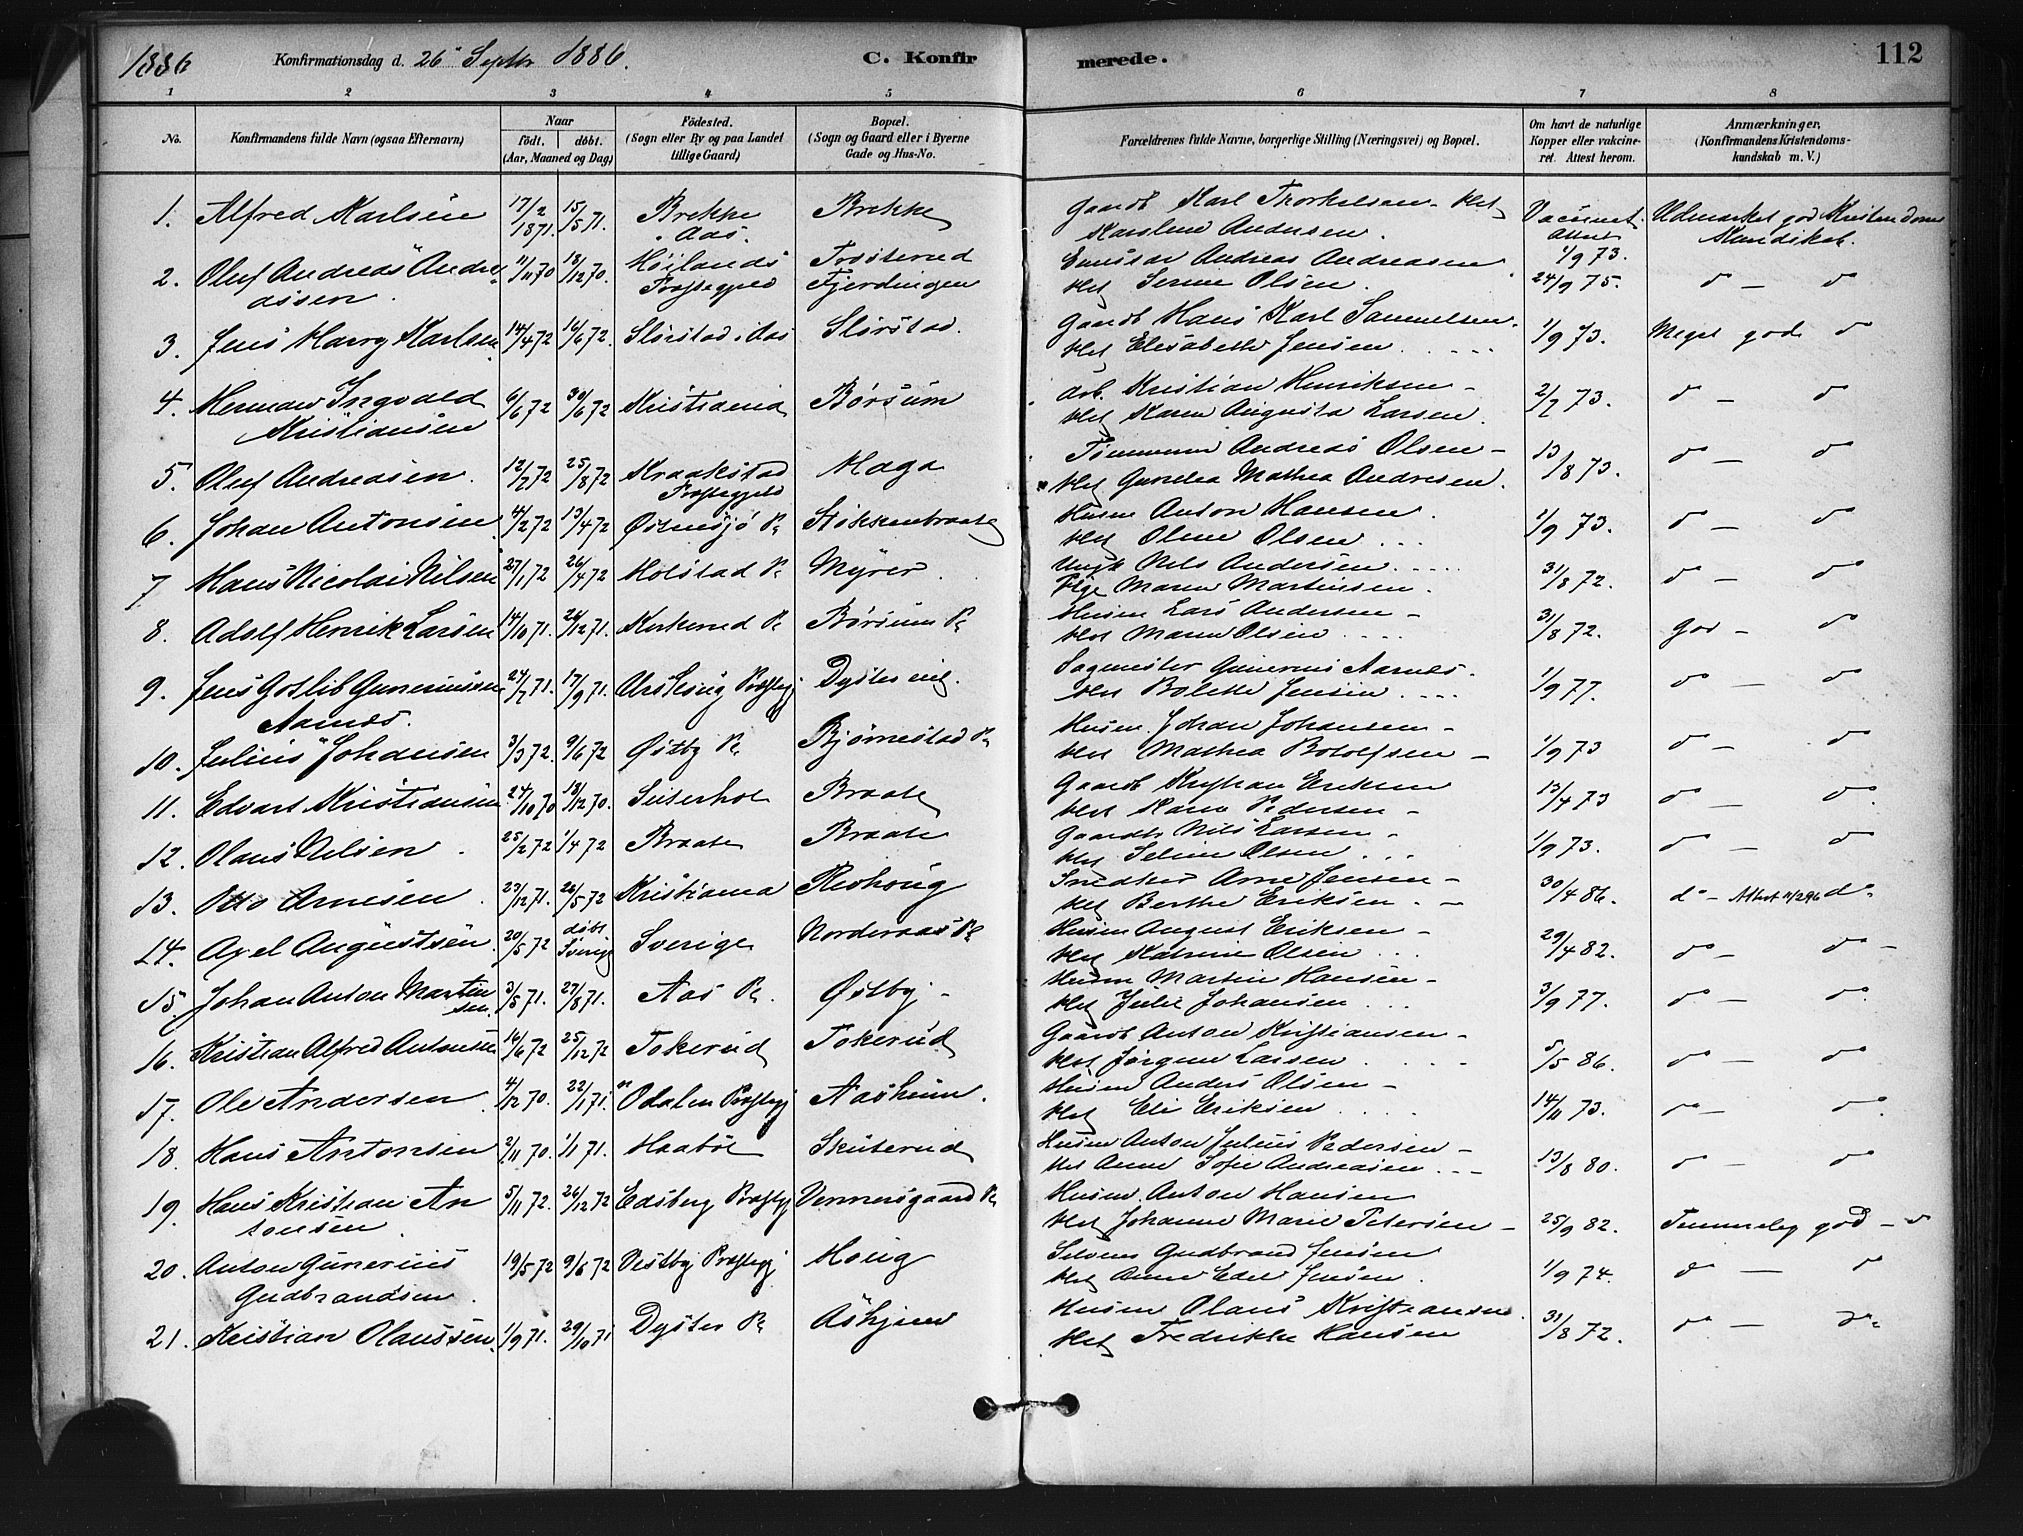 1886 Konfirmationsdag d. 26 Septbr 1886. C. Konfirmerede. 112
1 2 3 4 5 6 7 8
No. Konfirmandens fulde Navn (ogsaa Efternavn) Naar født. døbt. (Aar, Maaned og Dag) Fødested. (Sogn eller By og paa Landet tillige Gaard) Bopæl. (Sogn og Gaard eller i Byerne Gade og Hus-No. Forældrenes fulde Navne, borgerlige Stilling (Næringsvei) og Bopæl. Om havt de naturlige Kopper eller vakcineret. Attest herom. Anmærkninger. (Konfirmandens Kristendomskundskab m. V.)
1. Alfred Karlsen 17/2 1871. 15/5 71. Brekke Aas. Brekke Gaardb Karl Thorkelsen
Andersen. 1/9 73.
2. Oluf Andreas Andreassen 11/11 70 18/12 70. Høilands Præstegjeld Fjerdingen Andreas Andreasen
Serine Olsen. 24/9 75. do — do
3. Jens Harry Karlsen 14/4 72 16/6 72. Gaardb Hans Karl Samuelsen.
Elisabeth Jensen 1/9 73. Meget god do
4. Herman Ingvald Kristiansen 6/6 72 30/6 72 Kristiania Børsum Arb. Kristian Henriksen
Karen Augusta Larsen. 2/7 73. do — do
5. Oluf Andreasen. 12/7 72 25/8 72 Kraakstad Præstegjeld Haga Tømmerm Andreas Olsen
Mathea Andresen. 13/8 73. do — do
6. Johan Antonsen 4/2 72 13/4 72 Anton Hansen.
Oline Olsen 1/9 73. do — do
7 Hans Nicolai Nilsen 27/1 72 26/4 72 Holstad Pl Myrer. Ungk Nils Andersen
Pige Maren Martinsen. 31/8 72. do — do
8. Adolf Henrik Larsen 14/10 71. 26/12 71. Børsum Pl Husm Lars Andersen
Maren Olsen 31/8 72. God — do
9. Jens Gotlib Gunerius­sen Aarnes. 24/7 71. 17/9 71. Sagmester Gunerius Aarnes.
Bolette Jensen 1/9 77. do — do
10. Julius Johansen 3/3 72. 9/6 72 Østby Pl Bjørnestad Pl Husm. Johan Johansen
Mathea 1/9 73 do — do
11. Edvart Kristiansen 24/10 70 18/12 70. Braate Gaardb Kristian Eriksen
Karen Pedersen 13/4 73 do — do
12. Olaus Nilsen 25/2 72 1/4 72 Braate Braate Gaardb Nils Larsen
Olsen 1/9 73. do — do
13. Otto Arnesen 23/12 71. 26/5 72 Kristiania Snedker Arne Jensen
Berthe Eriksen. 30/4 86. do — Attest do
14. Axel Augustsen 20/5 72 døbt Sverige Sverige Norderaas Pl Husm August Eriksen
Katrine Olsen 29/4 82. do — do
15. Johan Anton Martinsen. 3/5 71. 27/8 71. Aas Pl. Østby Husm Martin Hansen
Julie Johansen 3/9 77. do — do
16. Kristian Alfred Antonsen 16/6 72 25/12 72 Tokerud Tokerud Gaardb Anton Kristiansen
Jørgine Larsen 5/5 86. do — do
17. Ole Andersen 4/12 70. 22/1 71. Odalen Præstegj Aasheim. Husm Anders Olsen
Eli Eriksen 14/11 73. do — do
18. Hans Antonsen 2/11 70. 1/1 71. Haabøl Skuterud Husm Anton Julius Pedersen
Anne Sofie Andreasen 13/8 80. do — do
19. Hans Kristian Antonsen. 5/11 72. 26/12 72 Edsberg Præstegj Vermersgaard Pl Husm. Anton Hansen
Johanne Marie Petersen 25/9 82. Temmelig god — do
20. Anton Gunerius Gudbrandsen. 19/5 72 9/6 72 Vestby Præstegj Houg Gudbrand Jensen
Jensen. 1/9 74. do — do
21. Kristian Olaussen. 1/9 71. 29/10 71 Dyster Pl Husm Olaus Kristiansen.
Fredrikke Hansen 31/8 72. do — do